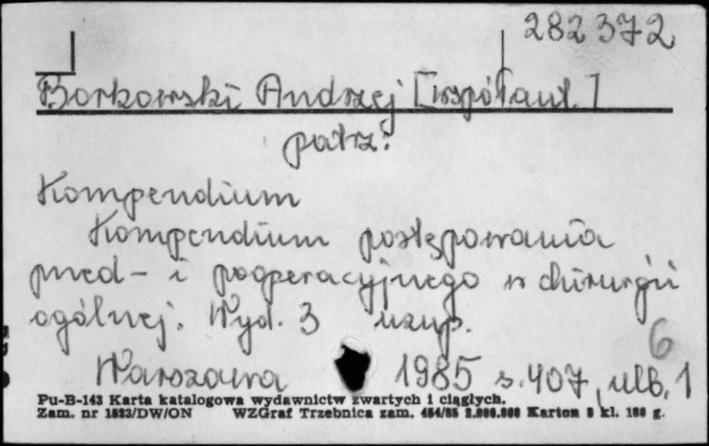 282372
Borkowski Andrzej [współaut.]
patrz:
Kompendium
Kompendium postępowania
przed- i pooperacyjnego w chirurgii
ogólnej. Wyd. 3 uzup.
6
Warszawa 1985 s. 407, nlb. 1
Pu-B-143 Karta katalogowa wydawnictw zwartych i ciągłych.
Zam. nr 1823/DW/ON WZGraf Trzebnica zam. 454/85 2.000.000 Karton 5 kl. 180 g.